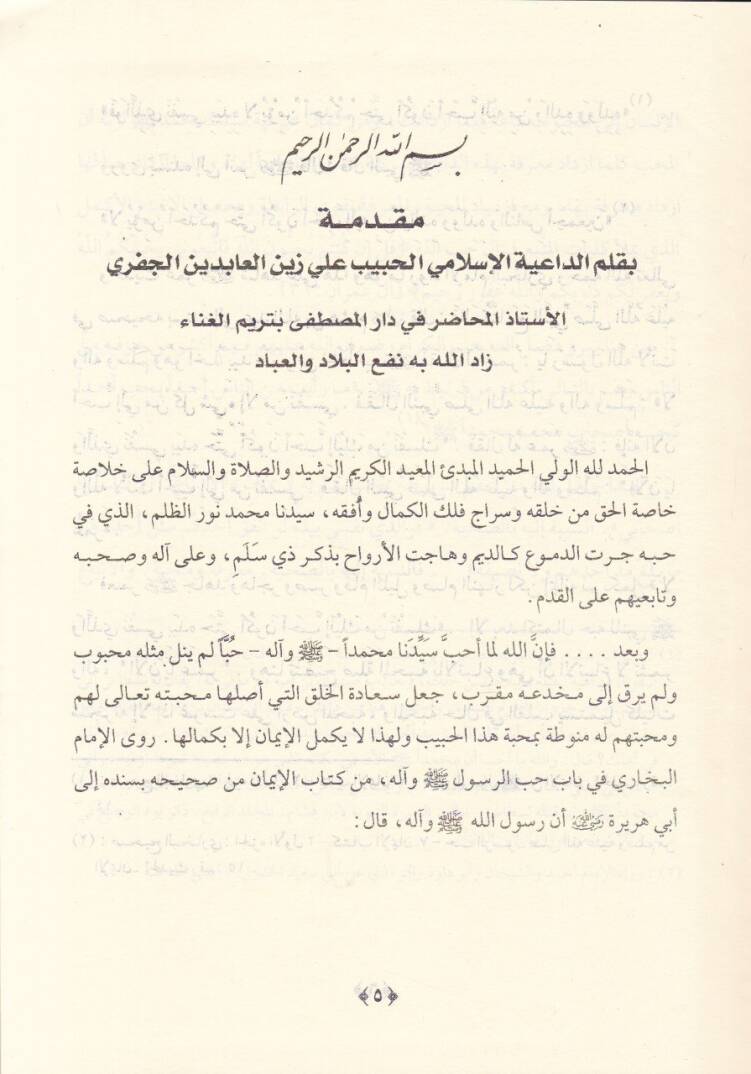 بسم الله الرحمن الرحيم
مقدمة
بقلم الداعية الاسلامي الحبيب علي زين العابدين الجفري
الأستاذ المحاضر في دار المصطفى بتريم الغناء
زاد الله به نفع البلاد والعباد
الحمد لله الولي الحميد المبدئ المعيد الكريم الرشيد والصلاة والسلام على خلاصة
خاصة الحق من خلقه وسراج فلك الكمال وأُفقه، سيدنا محمد نور الظلم، الذي في
حبه جرت الدموع كالديم وهاجت الأرواح بذكر ذي سَلَمِ، وعلى آله وصحبه
وتابعيهم على القدم.
وبعد .... فإنَّ الله لما أحبَّ سَيِّدَنا محمداً - ﷺ وآله - حُبَّاً لم ينل مثله محبوب
ولم يرق إلى مخدعه مقرب، جعل سعادة الخلق التي أصلها محبته تعالى لهم
ومحبتهم له منوطة بمحبة هذا الحبيب ولهذا لا يكمل الإيمان إلا بكمالها. روى الإمام
البخاري في باب حب الرسول ﷺ وآله، من كتاب الإيمان من صحيحه بسنده إلى
أبي هريرة رضي الله عنه أن رسول الله ﷺ وآله، قال:
﴿٥﴾